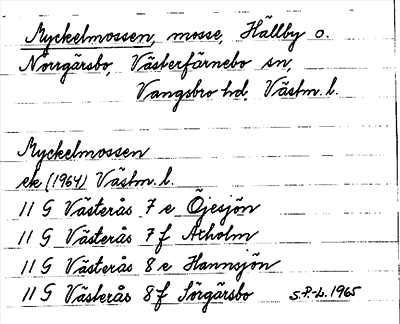 Myckelmossen, mosse, Hällby o.
Norrgärsbo, Västerfärnebo sn,
Vangsbro hd, Västm. l.
Myckelmossen
ek (1964) Västm. l.
11 G Västerås 7 e Öjesjön
11 G Västerås 7 f Axholm
11 G Västerås 8 e Hannsjön
11 G Västerås 8 f Sörgärsbo S.P.-L. 1965